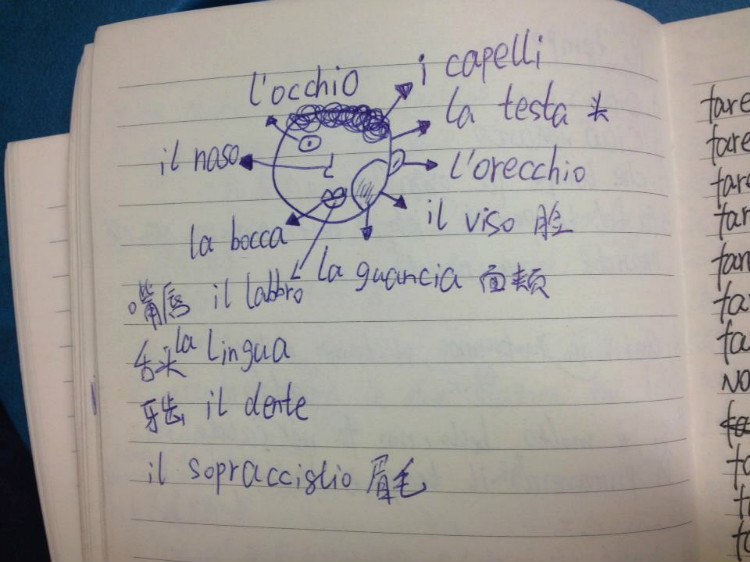 l'occhio
i capelli
la testa 头
il naso
l'orecchio
il viso 脸
la bocca
la guancia 面颊
嘴唇 il labbro
舌头 la lingua
牙齿 il dente
il sopracciglio 眉毛
fare
fare